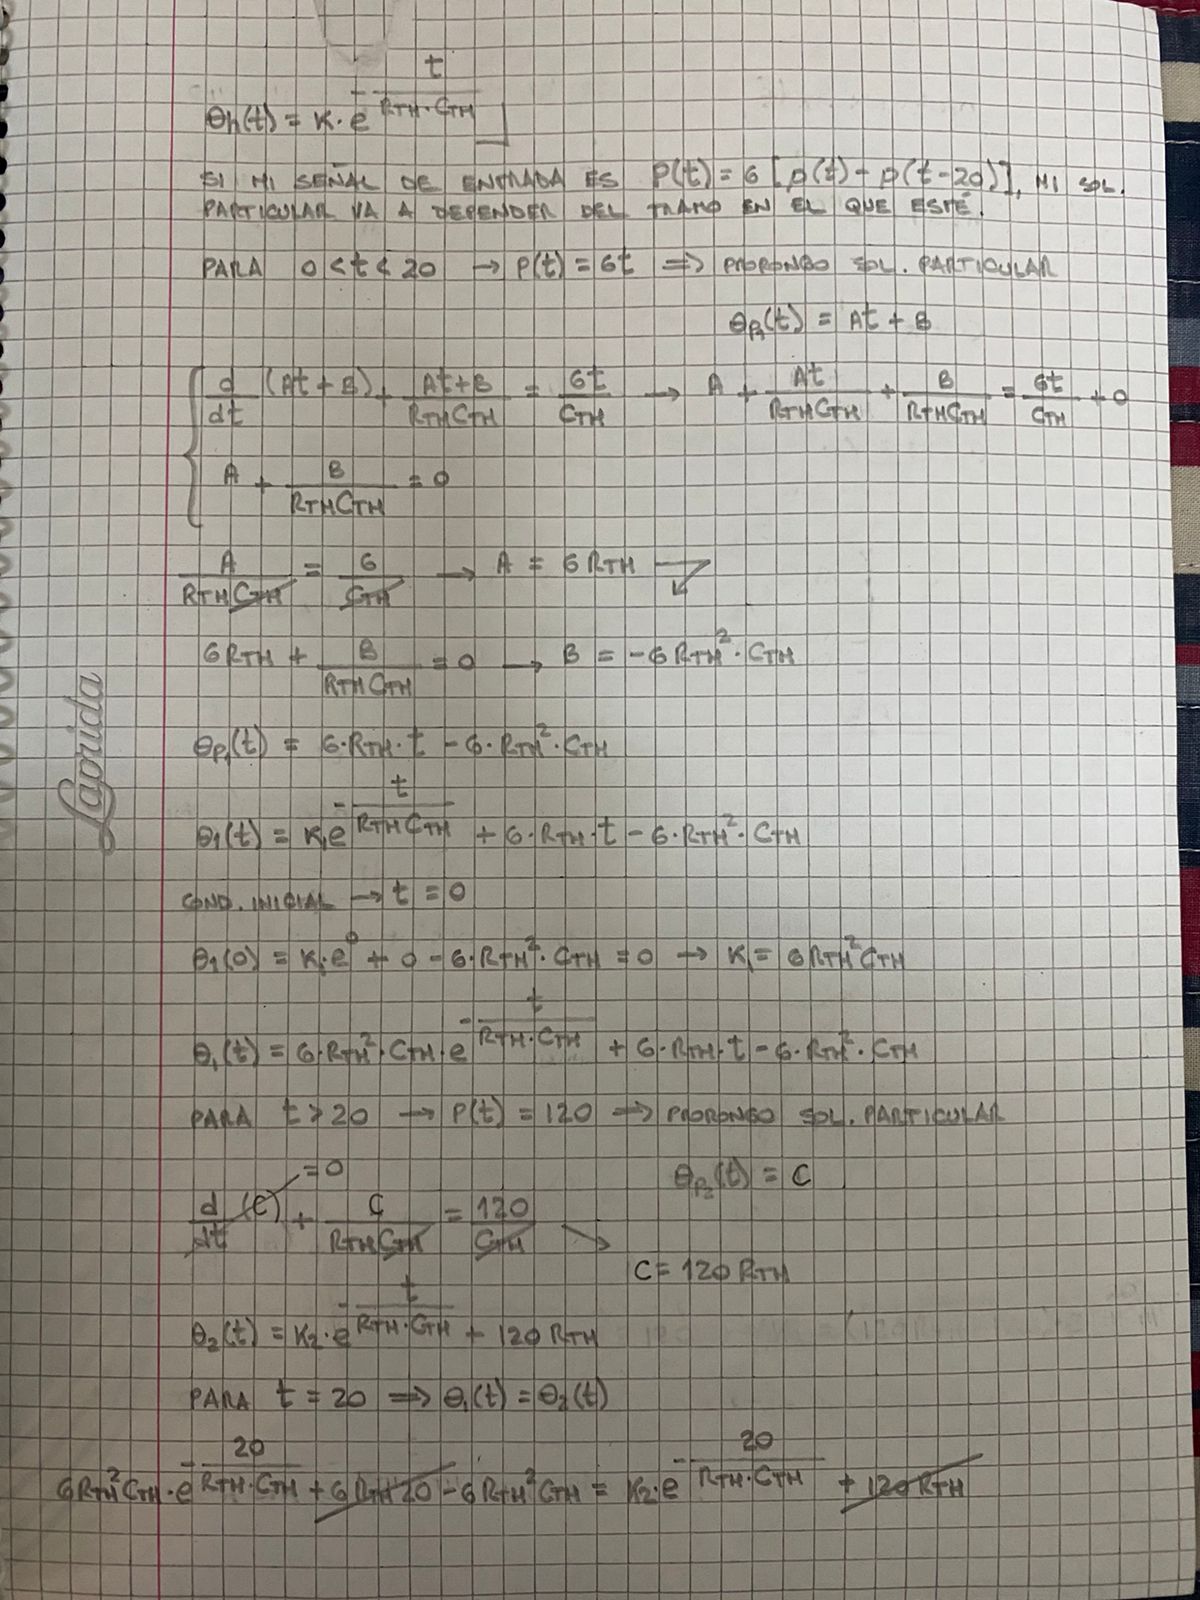 θh(t) = K·e^(-t/(RTH·CTH))
SI MI SEÑAL DE ENTRADA ES P(t) = 6[ρ(t) - ρ(t-20)], MI SOL.
PARTICULAR VA A DEPENDER DEL TRAMO EN EL QUE ESTÉ.
PARA 0 < t < 20 → P(t) = 6t ⇒ PROPONGO SOL. PARTICULAR
θP1(t) = At + B
d/dt (At + B) + (At+B)/(RTHCTH) = 6t/CTH → A + At/(RTHCTH) + B/(RTHCTH) = 6t/CTH + 0
A + B/(RTHCTH) = 0
A/(RTHCTH) = 6/CTH → A = 6RTH
6RTH + B/(RTHCTH) = 0 → B = -6RTH²·CTH
Laprida
θP1(t) = 6·RTH·t - 6·RTH²·CTH
θ1(t) = K1e^(-t/(RTHCTH)) + 6·RTH·t - 6·RTH²·CTH
COND. INICIAL → t = 0
θ1(0) = K1·e⁰ + 0 - 6·RTH²·CTH = 0 → K1 = 6RTH²CTH
θ1(t) = 6·RTH²·CTH·e^(-t/(RTH·CTH)) + 6·RTH·t - 6·RTH²·CTH
PARA t > 20 → P(t) = 120 ⇒ PROPONGO SOL. PARTICULAR
θP2(t) = C
= 0
d/dt (C) + C/(RTHCTH) = 120/CTH
C = 120 RTH
θ2(t) = K2·e^(-t/(RTH·CTH)) + 120 RTH
PARA t = 20 ⇒ θ1(t) = θ2(t)
6RTH²CTH·e^(-20/(RTH·CTH)) + 6RTH20 - 6RTH²CTH = K2·e^(-20/(RTH·CTH)) + 120RTH